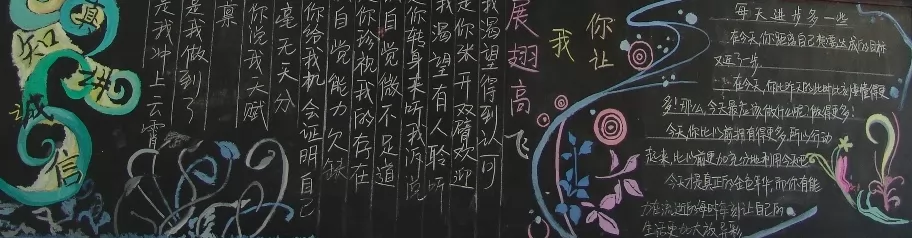 真
知
诚
信
你让
我
展翅高飞
我渴望得到认可
是你张开双臂欢迎
我渴望有人聆听
是你转身来听我诉说
自觉微不足道
是你珍视我的存在
自觉能力欠缺
你给我机会证明自己
毫无天分
你说我天赋
禀
是我做到了
是我冲上云霄
每天进步多一些
在今天,你距离自己想要达成的目标
又近了一步。
在今天,你比昨天的此时此刻懂得更
多!那么,今天最应该做什么呢?做得更多!
今天你比以前拥有得更多,所以行动
起来,比以前更加充分地利用今天吧
今天才是真正的金色年华,而你有能
力在流逝的每时每刻让自己的
生活更加大放异彩